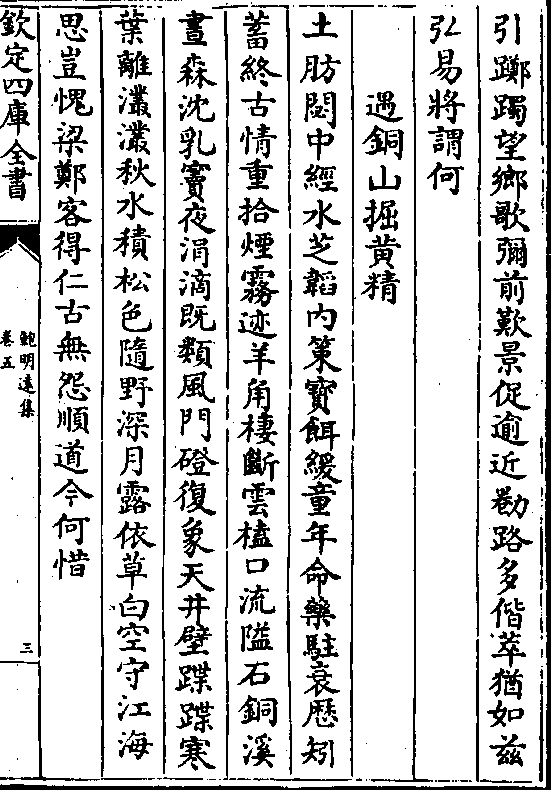 引躑躅望鄉歌彌前歎景促逾近勌路多偕萃猶如茲
弘易將謂何
遇銅山掘黄精
土肪閟中經水芝韜内策寳餌緩童年命藥駐衰歴矧
蓄終古情重拾煙霧迹羊角棲斷雲榼口流隘石銅溪
晝森沈乳竇夜涓滴既類風門磴復象天井壁蹀蹀寒
葉離灇灇秋水積松色隨野深月露依草白空守江海
思豈愧梁鄭客得仁古無怨順道今何惜
欽定四庫全書
鮑明遠集
卷五
三